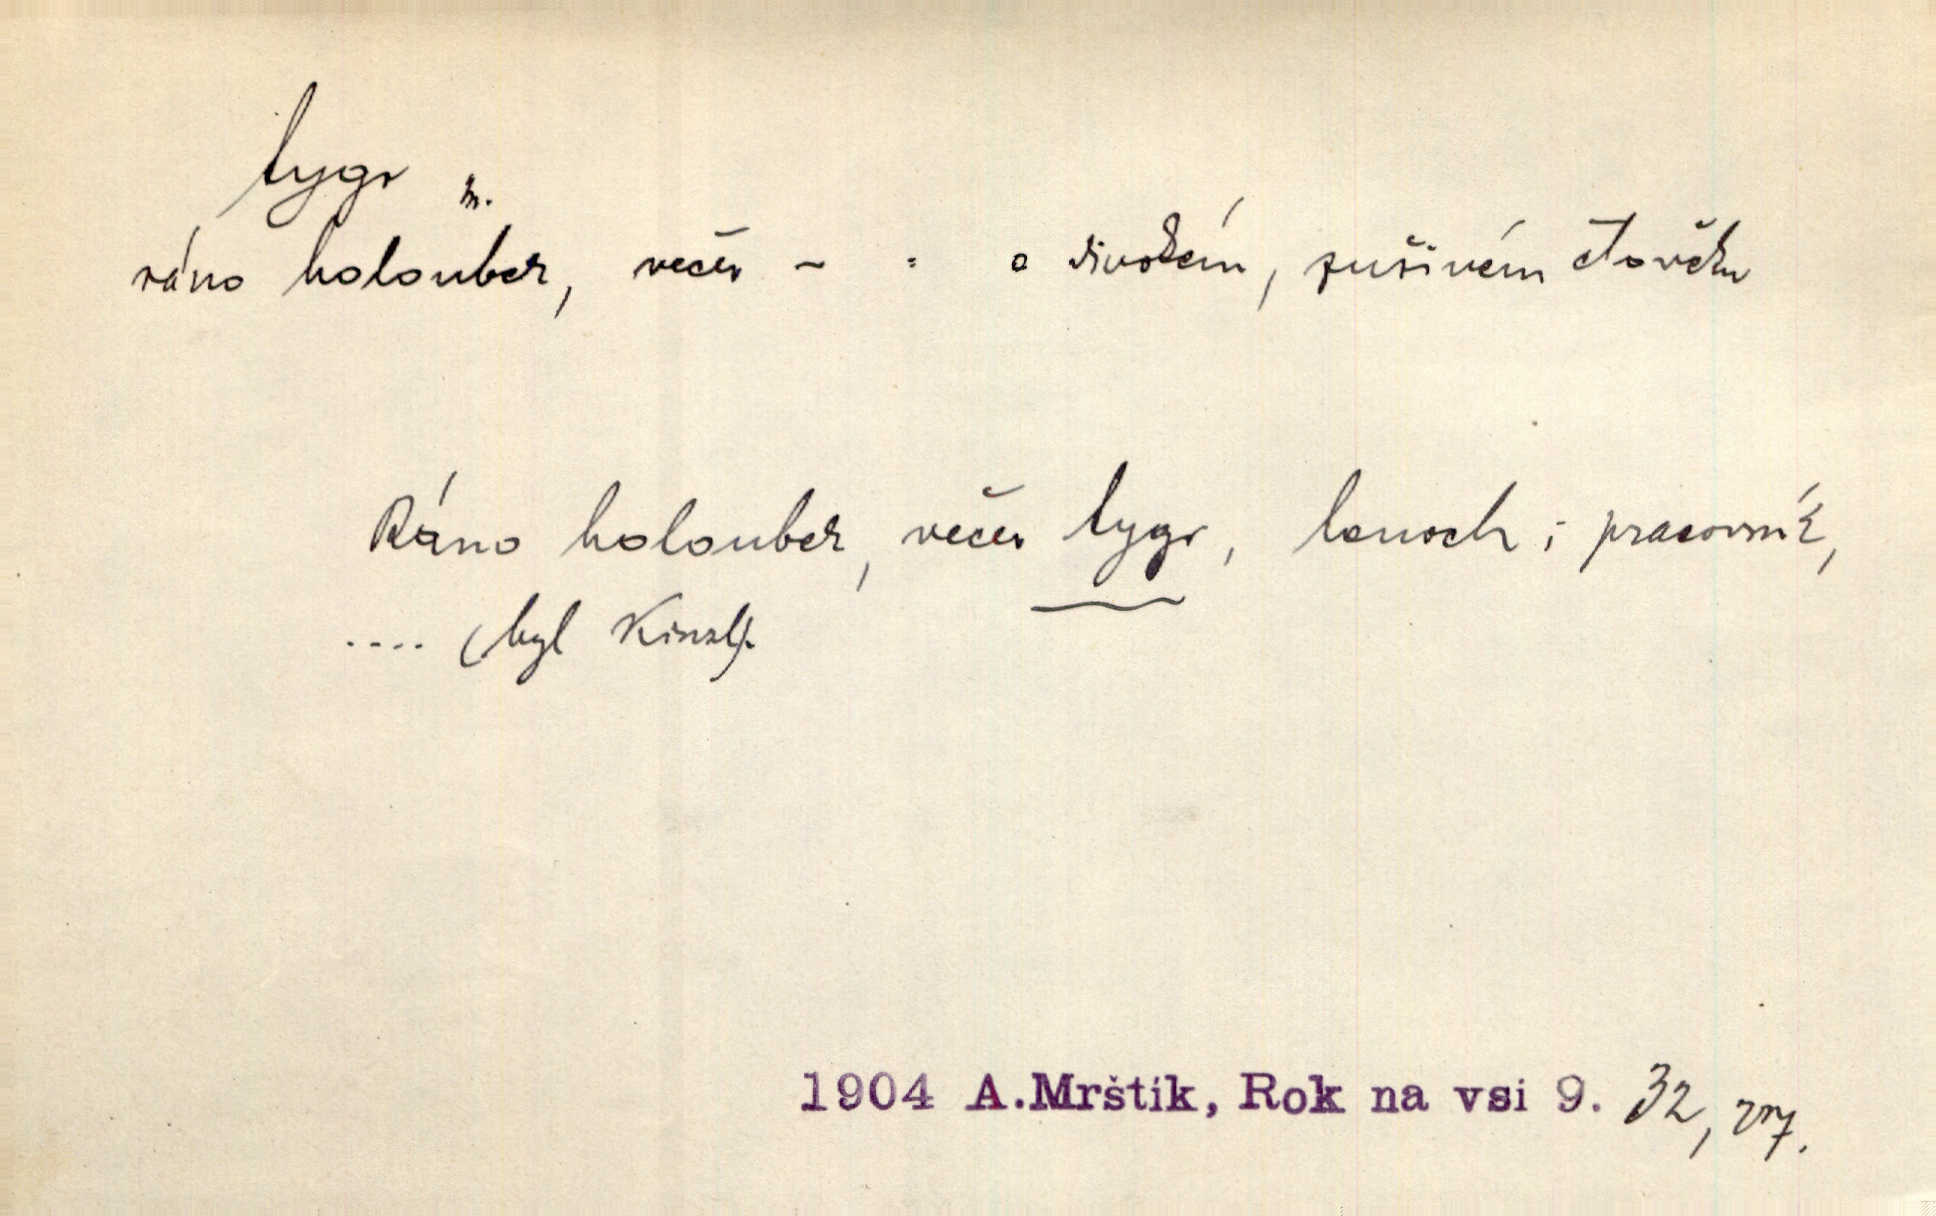 tygr m.
ráno holoubek, večer ~ : o divokém, zuřivém člověku
Ráno holoubek, večer tygr, lenoch i pracovník,
.... (byl Kinzl).
1904 A.Mrštík, Rok na vsi 9. 32,